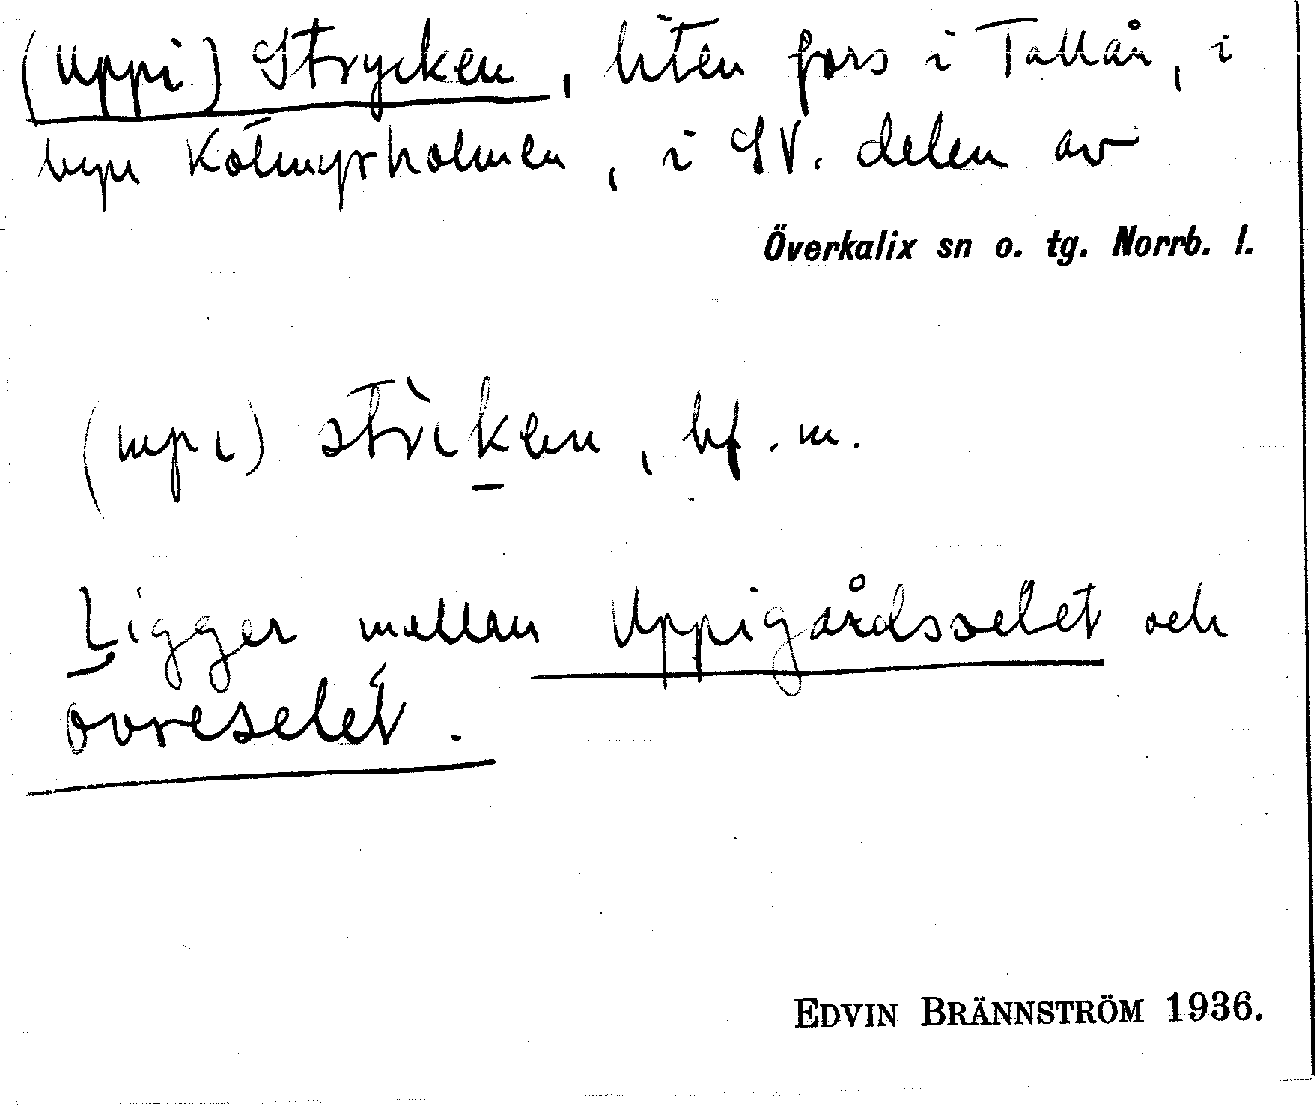 (Uppi) Strycken, liten fors i Tallån, i
byn Kölmyrholmen, i SV. delen av
Överkalix sn o. tg. Norrb. l.
(upi) strìken, bf. m.
Ligger mellan Uppigårdsselet och
övreselet.
EDVIN BRÄNNSTRÖM 1936.